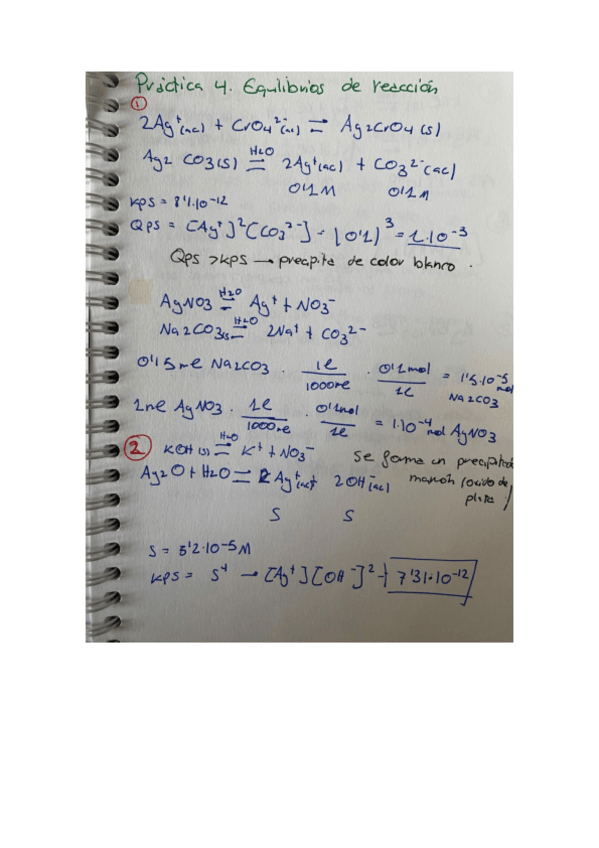 Práctica 4. Equilibrios de reacción
①
2Ag⁺(ac) + CrO4²⁻(ac) ⇌ Ag2CrO4(s)
Ag2CO3(s) ⇌ 2Ag⁺(ac) + CO3²⁻(ac)
H2O
0'1M 0'1M
KPS = 8'1·10⁻¹²
QPS = [Ag⁺]²[CO3²⁻] = (0'1)³ = 1·10⁻³
QPS > KPS → precipita de color blanco.
AgNO3 ⇌ Ag⁺ + NO3⁻
H2O
Na2CO3(s) ⇌ 2Na⁺ + CO3²⁻
H2O
0'15 ml Na2CO3 · 1l/1000ml · 0'1mol/1l = 1'5·10⁻⁵ mol Na2CO3
1ml AgNO3 · 1l/1000ml · 0'1mol/1l = 1·10⁻⁴ mol AgNO3
② KOH(s) ⇌ K⁺ + NO3⁻
H2O
se forma un precipitado
marrón (óxido de
plata)
Ag2O + H2O ⇌ 2Ag⁺(ac) + 2OH⁻(ac)
S S
S = 5'2·10⁻⁵M
KPS = S⁴ → [Ag⁺][OH⁻]² = 7'31·10⁻¹²